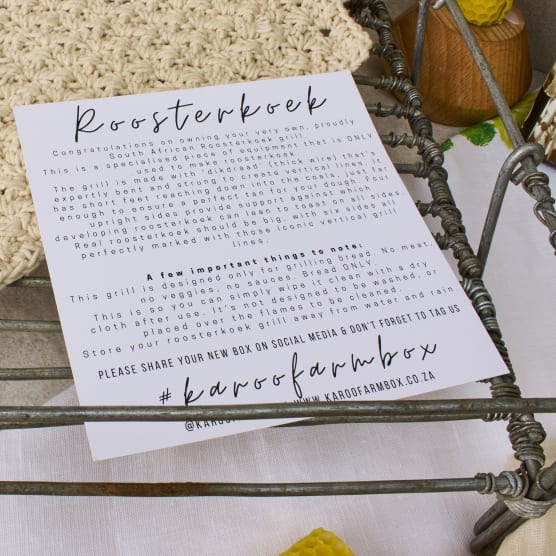 Roosterkoek
Congratulations on owning your very own, proudly
South African Roosterkoek grill.
This is a specialised piece of equipment that is ONLY
used to make roosterkoek.
The grill is made with 'dikdraad' (thick wire) that is
expertly bent and strung to create vertical lines. It
has short feet reaching down into the coals, just far
enough to ensure a perfect tan for your dough. Four
upright sides provide support against which
developing roosterkoek can lean to toast on all sides.
Real roosterkoek should be big, with six sides all
perfectly marked with those iconic vertical grill
lines.
A few important things to note:
This grill is designed only for grilling bread. No meat,
no veggies, no sauces. Bread ONLY.
This is so you can simply wipe it clean with a dry
cloth after use. It's not designed to be washed, or
placed over the flames to be cleaned.
Store your roosterkoek grill away from water and rain
PLEASE SHARE YOUR NEW BOX ON SOCIAL MEDIA & DON'T FORGET TO TAG US
#karoofarmbox
WWW.KAROOFARMBOX.CO.ZA